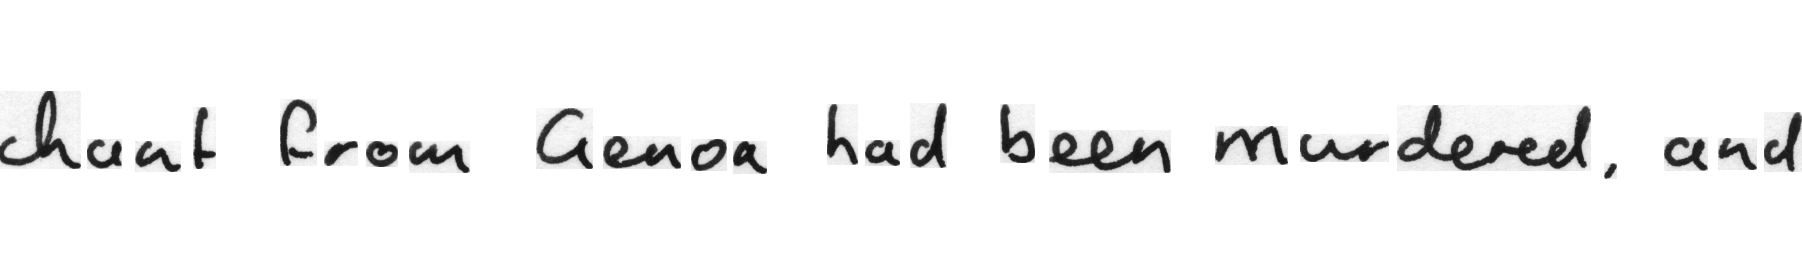 chant from Genoa had been murdered, and